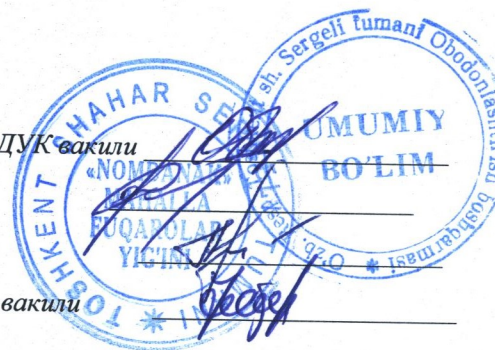 ДУК вакили
вакили
TOSHKENT SHAHAR SE
MAHALLA
FUQAROLAR
YIG'INI
sh. Sergeli tumani Obodonlashtirish boshqarmasi
O'zb. Resp.
UMUMIY
BO'LIM